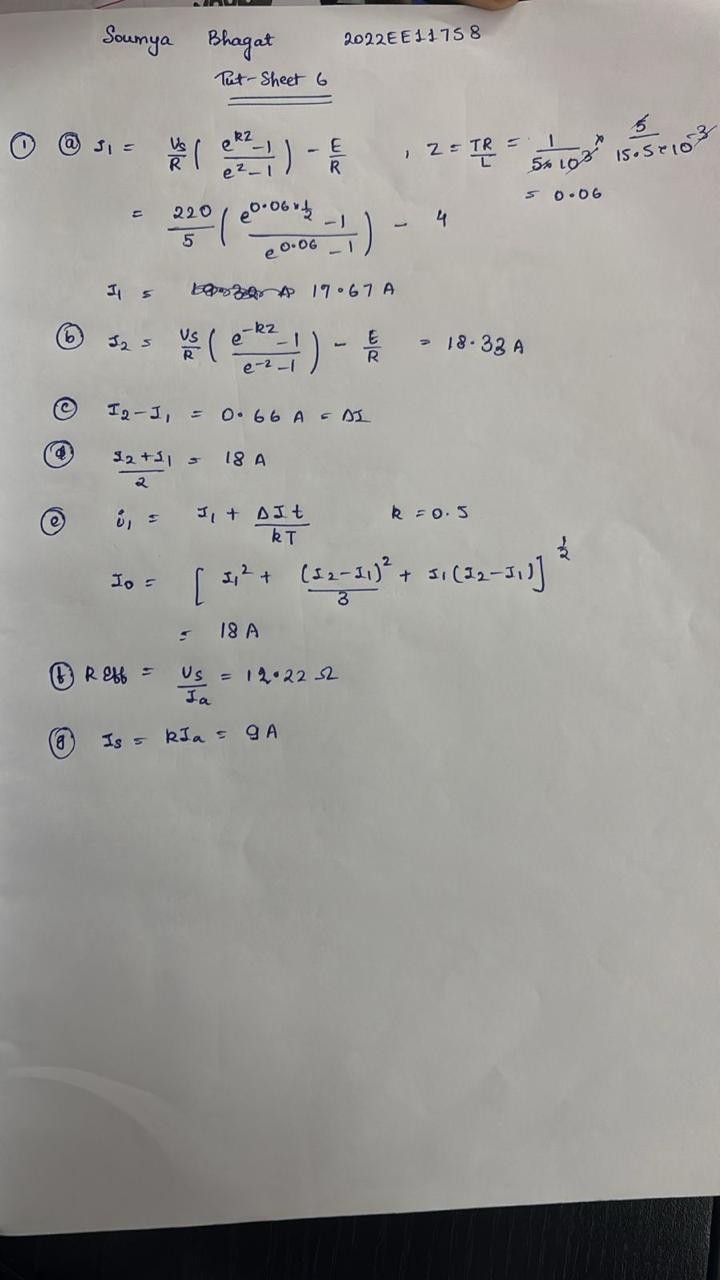 Soumya Bhagat 2022EE11758
Tut-Sheet 6
① ⓐ I₁ = Vs/R ( (e^kz - 1)/(e^z - 1) ) - E/R , z = TR/L = 1/(5×10³) × 5/(15.5×10⁻³)
= 220/5 ( (e^(0.06×1/2) - 1)/(e^0.06 - 1) ) - 4 = 0.06
I₁ = 17.67 A
ⓑ I₂ = Vs/R ( (e^-kz - 1)/(e^-z - 1) ) - E/R = 18.33 A
ⓒ I₂-I₁ = 0.66 A = ΔI
ⓓ (I₂+I₁)/2 = 18 A
ⓔ i₁ = I₁ + ΔIt/kT k = 0.5
I₀ = [ I₁² + (I₂-I₁)²/3 + I₁(I₂-I₁) ]^1/2
= 18 A
ⓕ R eff = Vs/Ia = 12.22 Ω
ⓖ Is = kIa = 9A